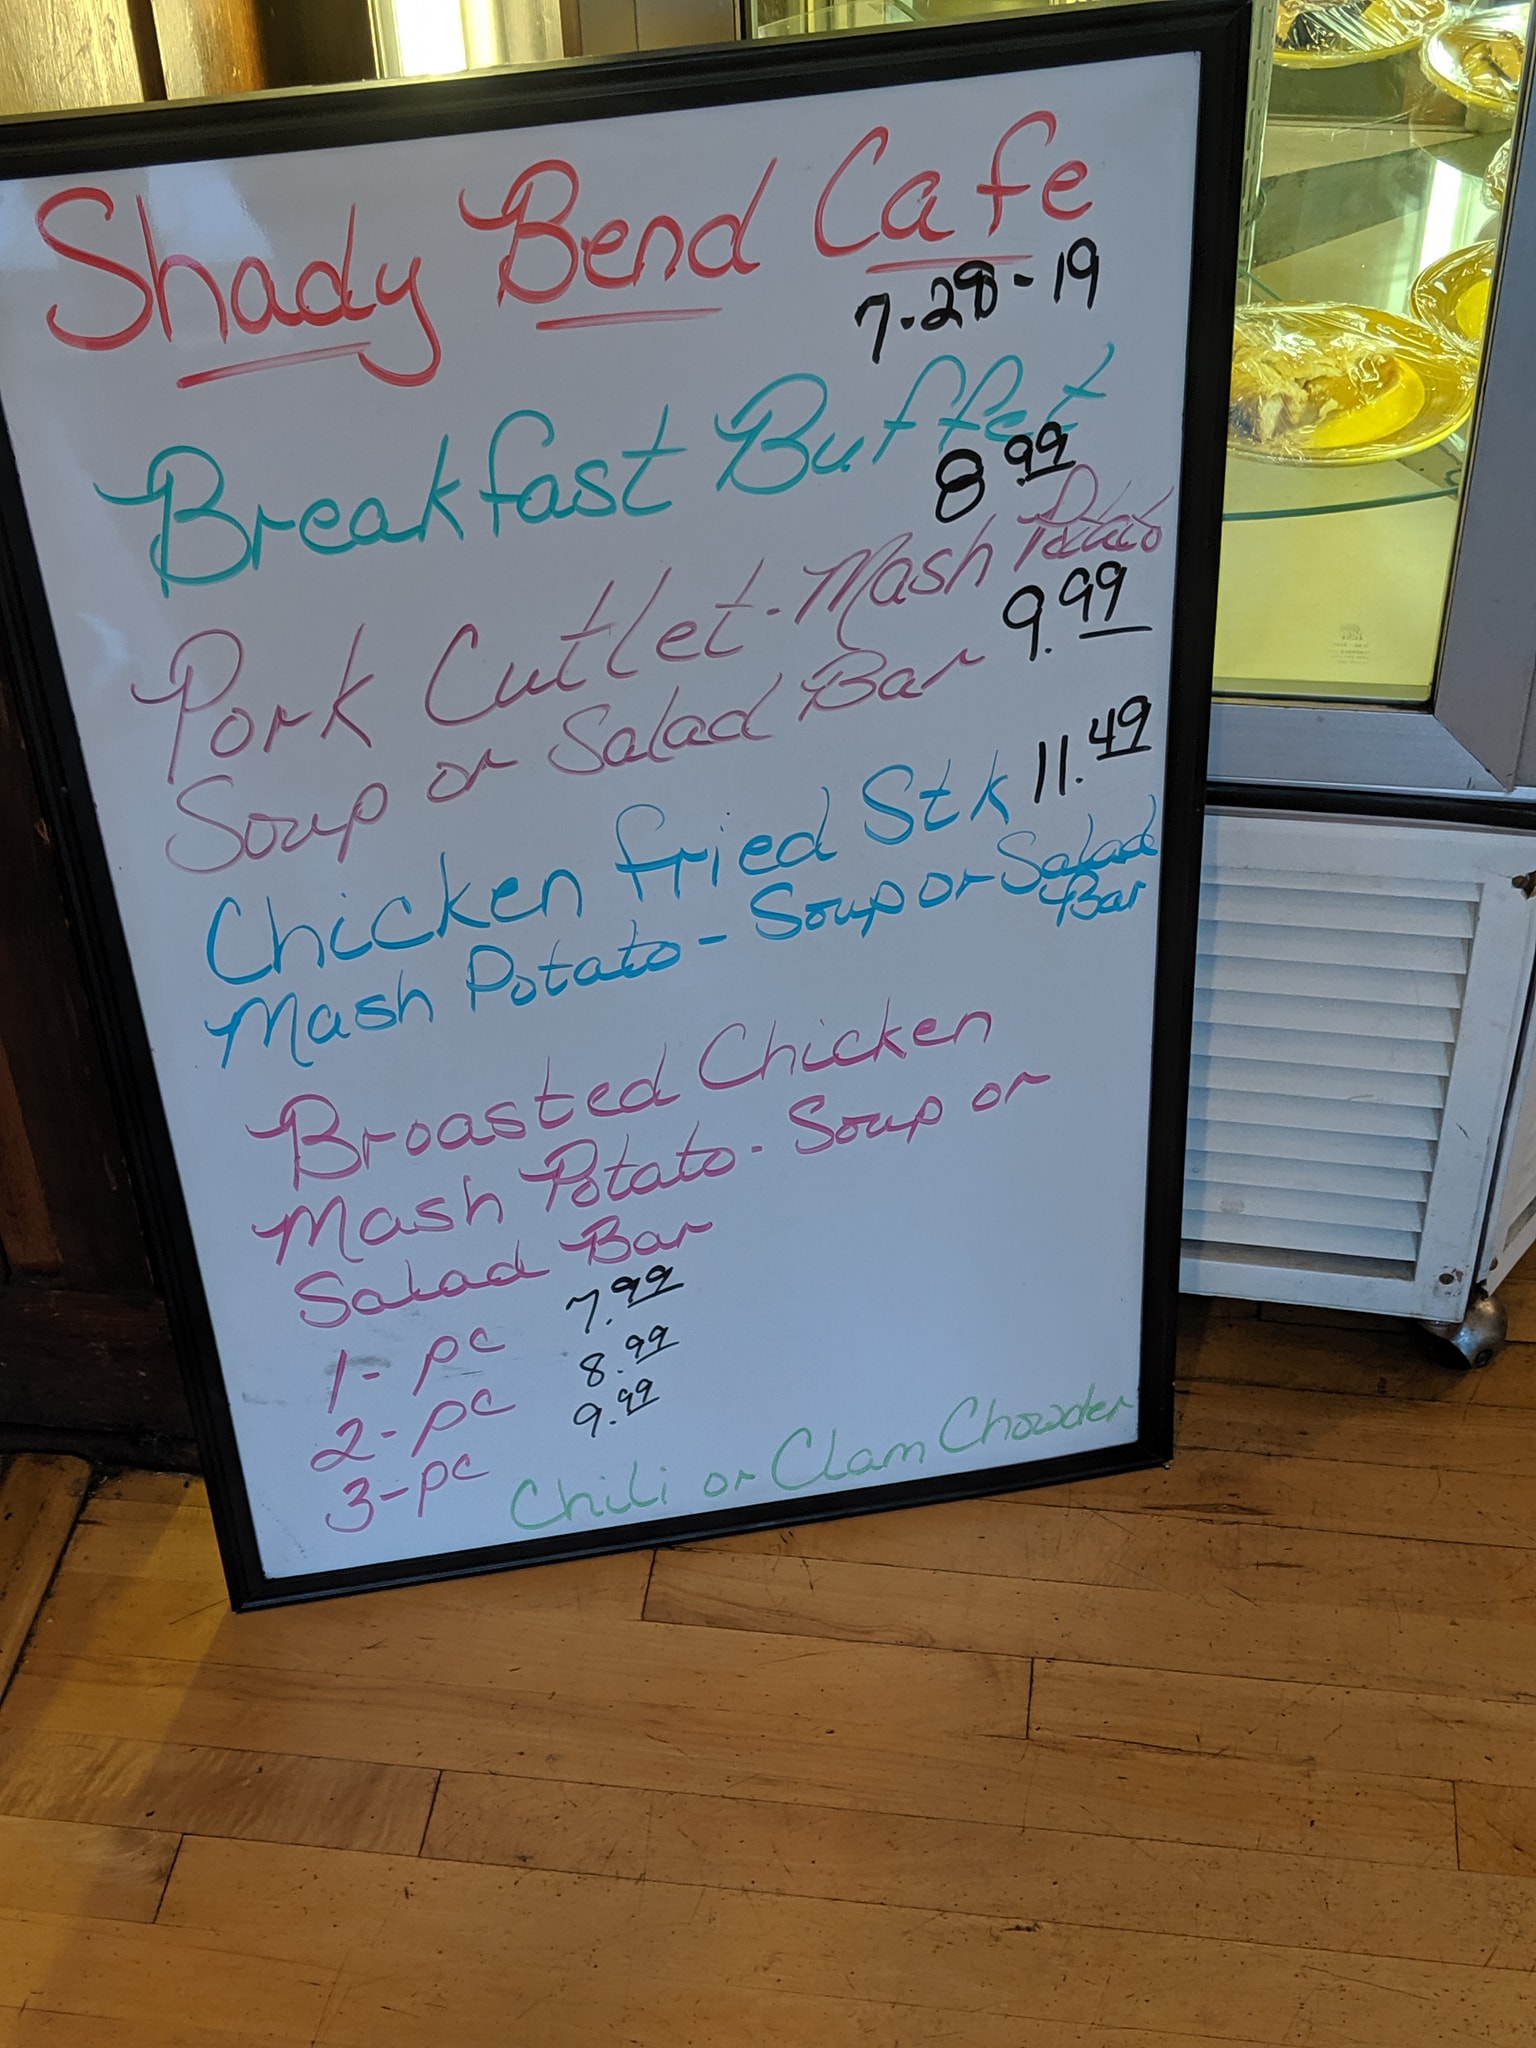 Shady Bend Cafe
7-28-19
Breakfast Buffet
8 99
Pork Cutlet - Mash Potato
9.99
Soup or Salad Bar
Chicken fried Stk 11.49
Mash Potato - Soup or Salad
Bar
Broasted Chicken
Mash Potato - Soup or
Salad Bar
1- pc 7.99
2- pc 8.99
3- pc 9.99
Chili or Clam Chowder